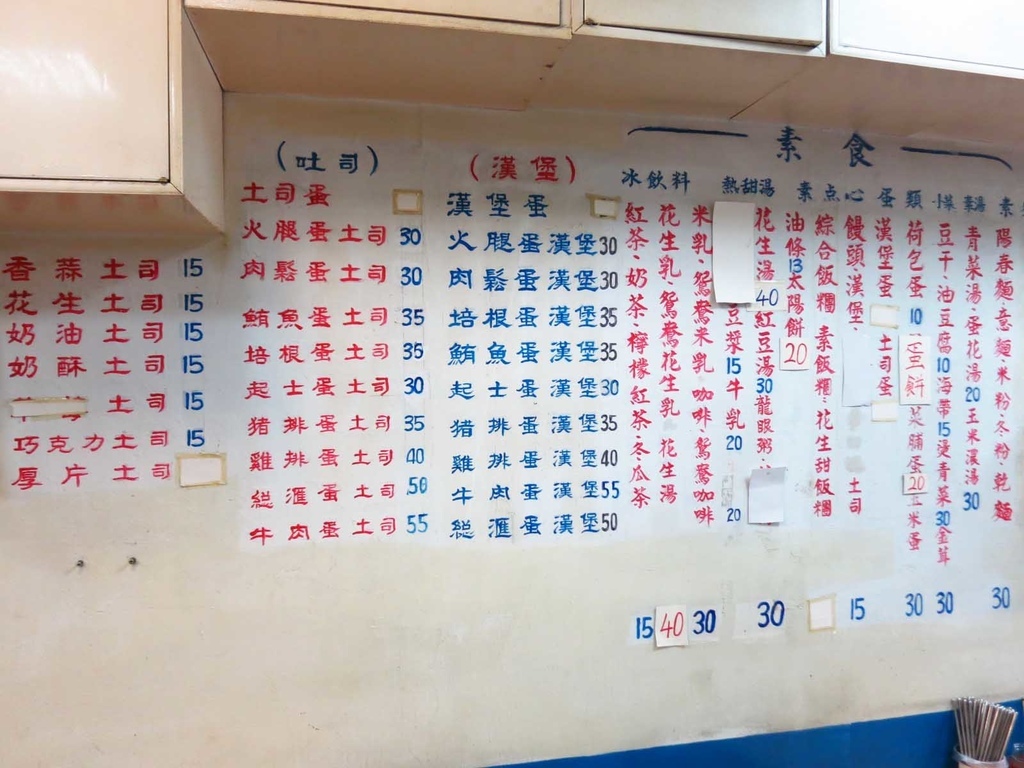 香蒜土司 15
花生土司 15
奶油土司 15
奶酥土司 15
土司 15
巧克力土司 15
厚片土司
(吐司)
土司蛋
火腿蛋土司 30
肉鬆蛋土司 30
鮪魚蛋土司 35
培根蛋土司 35
起士蛋土司 30
猪排蛋土司 35
雞排蛋土司 40
総滙蛋土司 50
牛肉蛋土司 55
(漢堡)
漢堡蛋
火腿蛋漢堡 30
肉鬆蛋漢堡 30
培根蛋漢堡 35
鮪魚蛋漢堡 35
起士蛋漢堡 30
猪排蛋漢堡 35
雞排蛋漢堡 40
牛肉蛋漢堡 55
総滙蛋漢堡 50
素食
冰飲料
紅茶·奶茶·檸檬紅茶·冬瓜茶 15
花生乳·鴛鴦花生乳·花生湯 40
米乳·鴛鴦米乳·咖啡·鴛鴦咖啡 30
熱甜湯
豆漿15牛乳20
20
花生湯40紅豆湯30龍眼粥
30
素点心
油條13太陽餅20
綜合飯糰 素飯糰·花生甜飯糰
饅頭漢堡·土司 15
蛋類
漢堡蛋 土司蛋
荷包蛋10 餅 菜脯蛋20玉米蛋 30
小菜
豆干·油豆腐10海帶15燙青菜30金茸 30
菜湯
青菜湯·蛋花湯20玉米濃湯30
素
陽春麵·意麵·米粉·冬粉·乾麵 30